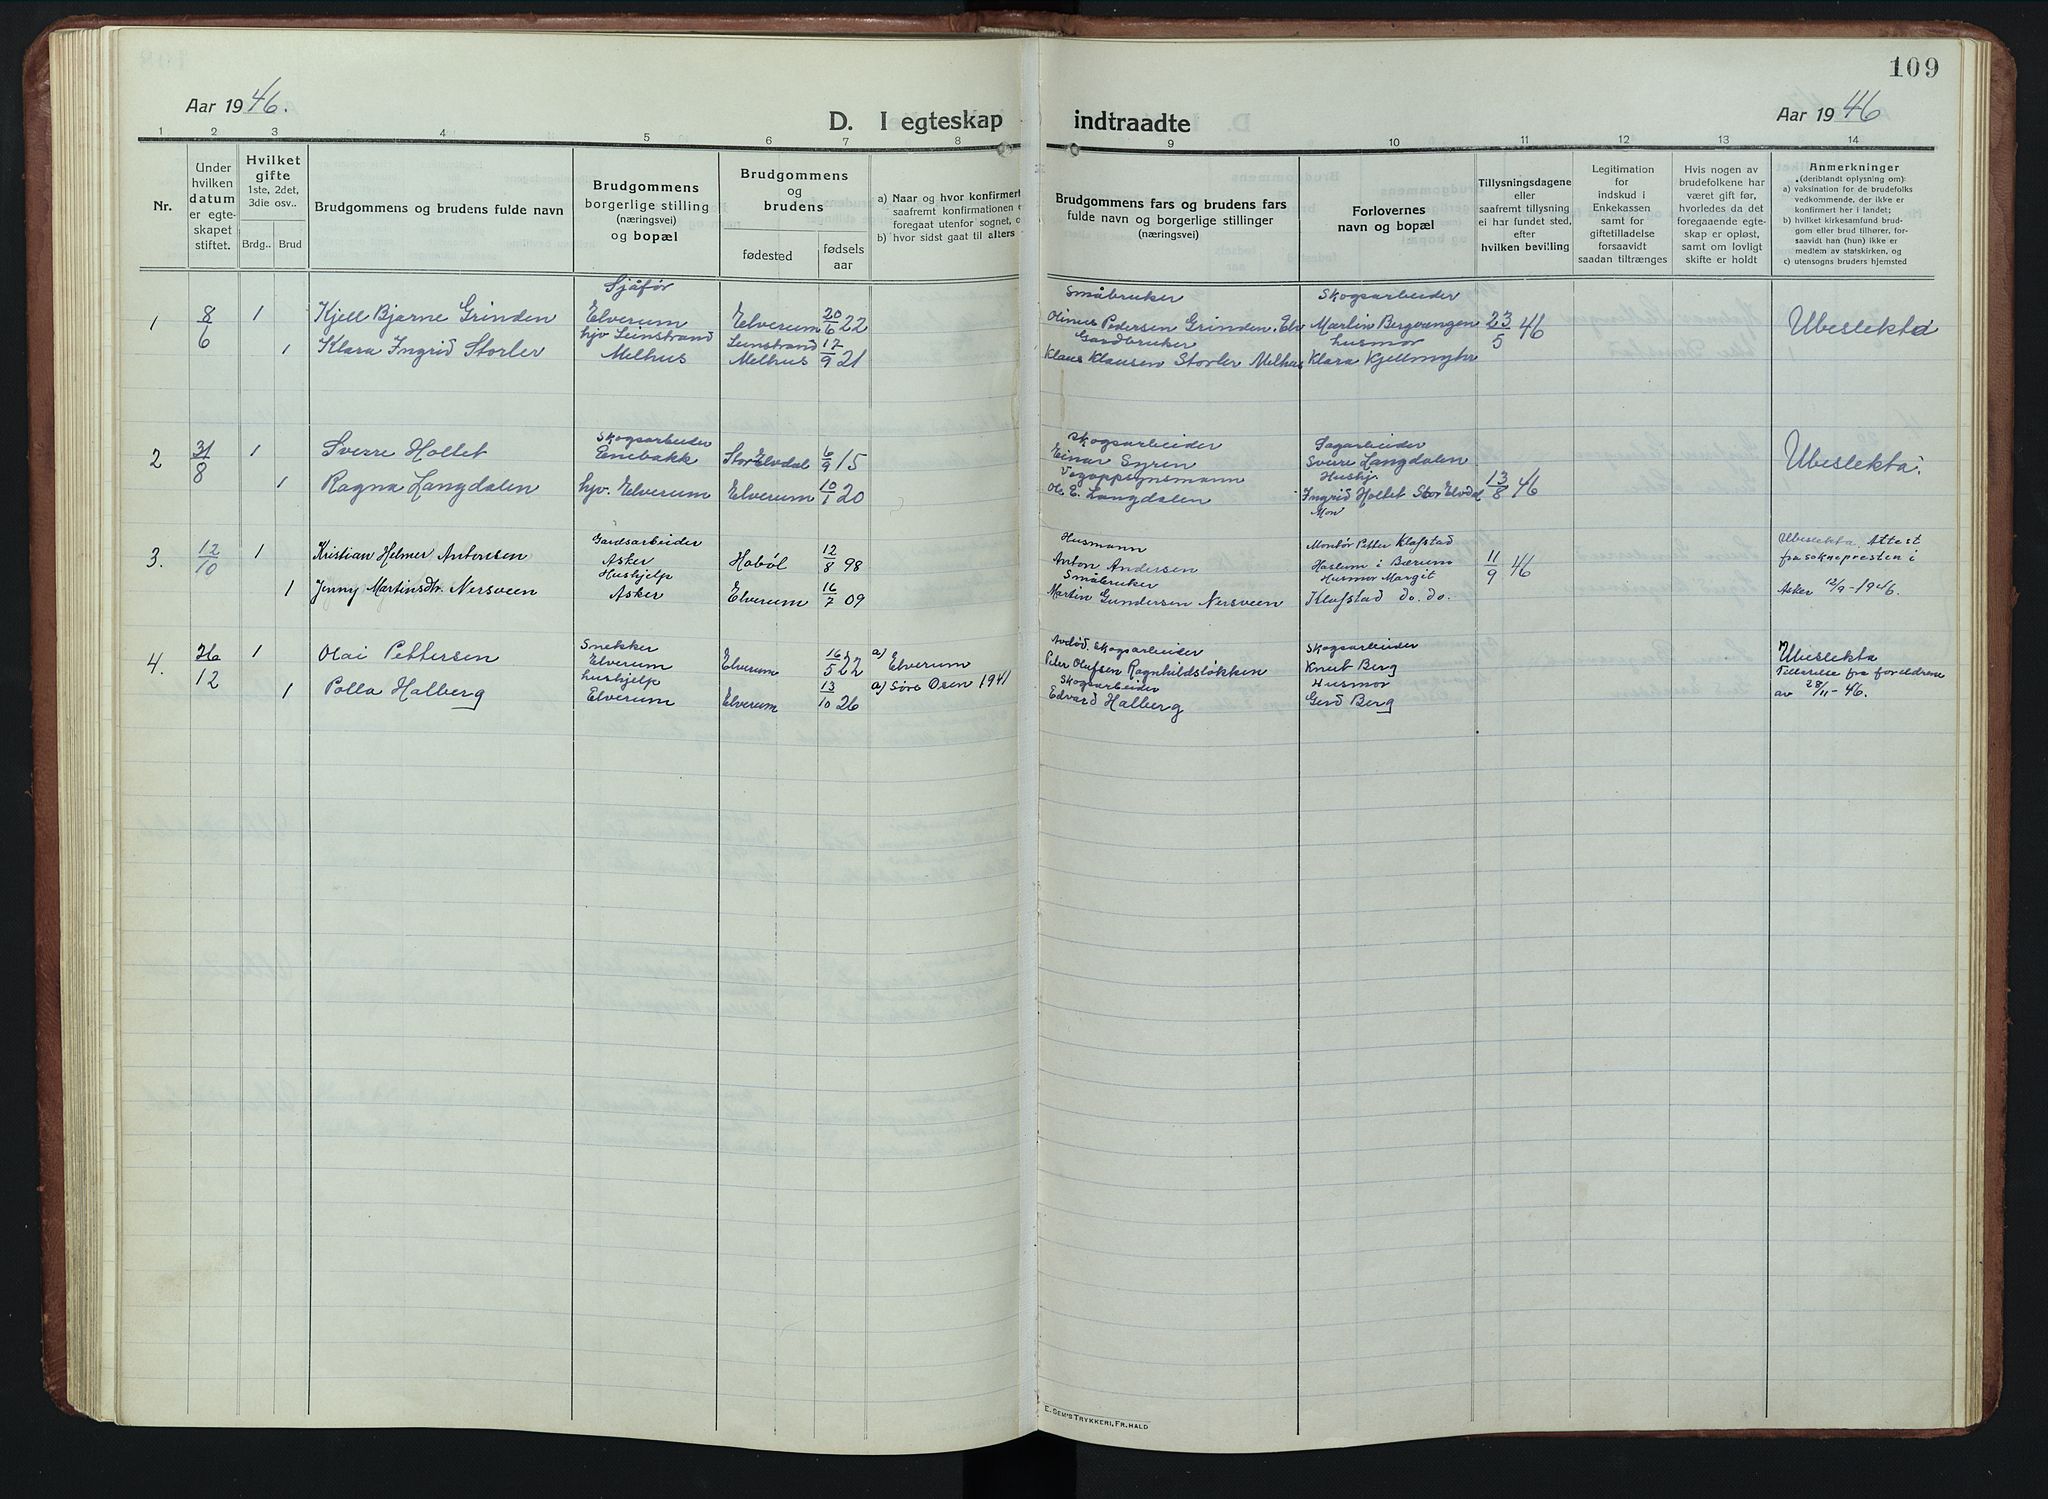 109
Aar 1946.
D. I egteskap indtraadte
Aar 1946
1 2 3 4 5 6 7 8 9 10 11 12 13 14
Nr.
Under hvilken datum er egte-skapet stiftet.
Hvilket gifte
1ste, 2det, 3die osv..
Brdg.. Brud
Brudgommens og brudens fulde navn
Brudgommens borgerlige stilling (næringsvei) og bopæl
Brudgommens og brudens
fødested
fødsels aar
a) Naar og hvor konfirmert
saafremt konfirmationen
foregaat utenfor sognet, o
b) hvor sidst gaat til alters
Brudgommens fars og brudens fars
fulde navn og borgerlige stillinger
(næringsvei)
Forlovernes
navn og bopæl
Tillysningsdagene
eller
saafremt tillysning
ei har fundet sted,
efter
hvilken bevilling
Legitimation
for
indskud i
Enkekassen
samt for
giftetilladelse
forsaavidt
saadan tiltrænges
Hvis nogen av
brudefolkene har
været gift før,
hvorledes da det
foregaaende egte-
skap er opløst,
samt om lovligt
skifte er holdt
Anmerkninger
(deriblandt oplysning om):
a) vaksination for de brudefolks
vedkommende, der ikke er
konfirmert her i landet;
b) hvilket kirkesamfund brud-
gom eller brud tilhører, for-
saavidt han (hun) ikke er
medlem av statskirken, og
c) utensogns bruders hjemsted
Sjåfør Småbruker Skogsarbeider
1 8/6 1 Kjell Bjarne Grinden Elverum Elverum 20/6 22 Olinus Pedersen Grinden. Elv Martin Bergvangen 23/5 46 Ubeslekta
hjv Leinstrand Leinstrand Gardbruker husmor
1 Klara Ingrid Storler Melhus Melhus 17/9 21 Klaus Klausen Storler Melhus Klara Kjellmyhr
Skogsarbeider Skogsarbeider Sagarbeider
2 31/8 1 Sverre Holtet Enebakk Stor Elvdal 6/9 15 Einar Syren Sverre Langdalen Ubeslekta.
Vegoppsynsmann Hushj.
1 Ragna Langdalen hjv. Elverum Elverum 10/1 20 Ole E. Langdalen Ingrid Holtet Stor Elvdal 13/8 46
Gardsarbeider Husmann
3. 12/10 1 Kristian Helmer Antersen Asker Hobøl 12/8 98 Anton Andersen Montør Petter Klafstad Haslum i Bærum 11/9 46 Ubeslekta. Attest fra soknepresten i
Hushjelp Småbruker Husmor Margit
1 Jenny Martinsdtr. Nersveen Asker Elverum 16/7 09 Martin Gundersen Nersveen Klafstad do. do. Asker 12/9-1946.
Snekker Avdød. Skogsarbeider Skogsarbeider
4. 26/12 1 Olai Pettersen Elverum Elverum 16/5 22 a) Elverum Peter Olufsen Ragnhildsløkken Knut Berg Ubeslekta
hushjelp Skogsarbeider Husmor
1 Polla Halberg Elverum Elverum 13/10 26 a) Søre Osen 1941 Edvard Halberg Gerd Berg fra foreldrene av 28/11-46.
E. SEM'S TRYKKERI, FR.HALD